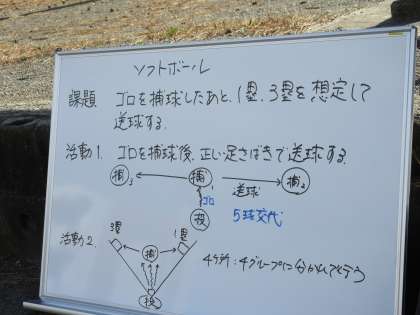 ソフトボール
課題 ゴロを捕球したあと、1塁、3塁を想定して
送球する.
活動1. ゴロを捕球後、正しい足さばきで送球する.
捕3 捕 捕2
送球
ゴロ
投 5球交代
活動2.
3塁 1塁
捕
投
4ヶ所:4グループに分かれて行う